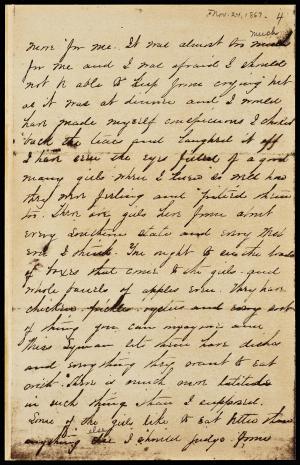 Nov. 24, 1867. 4
more for me. It was almost too much
for me and I was afraid I should
not be able to keep from crying but
as it was at dinner and I would
have made myself conspicuous I choked
back the tears and laughed it off
I have seen the eyes filled of a good
many girls where I have
they were feeling and pitied them
too. There are girls here from almost
every Southern state and every West
one I think. You ought to see the loads
of boxes that come to the girls - and
whole barrels of apples even. They have
chickens pickles oysters and every sort
of thing you can imagine and
Miss Lyman lets them have dishes
and everything they want to eat
with. There is much more latitude
in such things than I supposed.
Some of the girls like to eat better than
anything else I should judge from